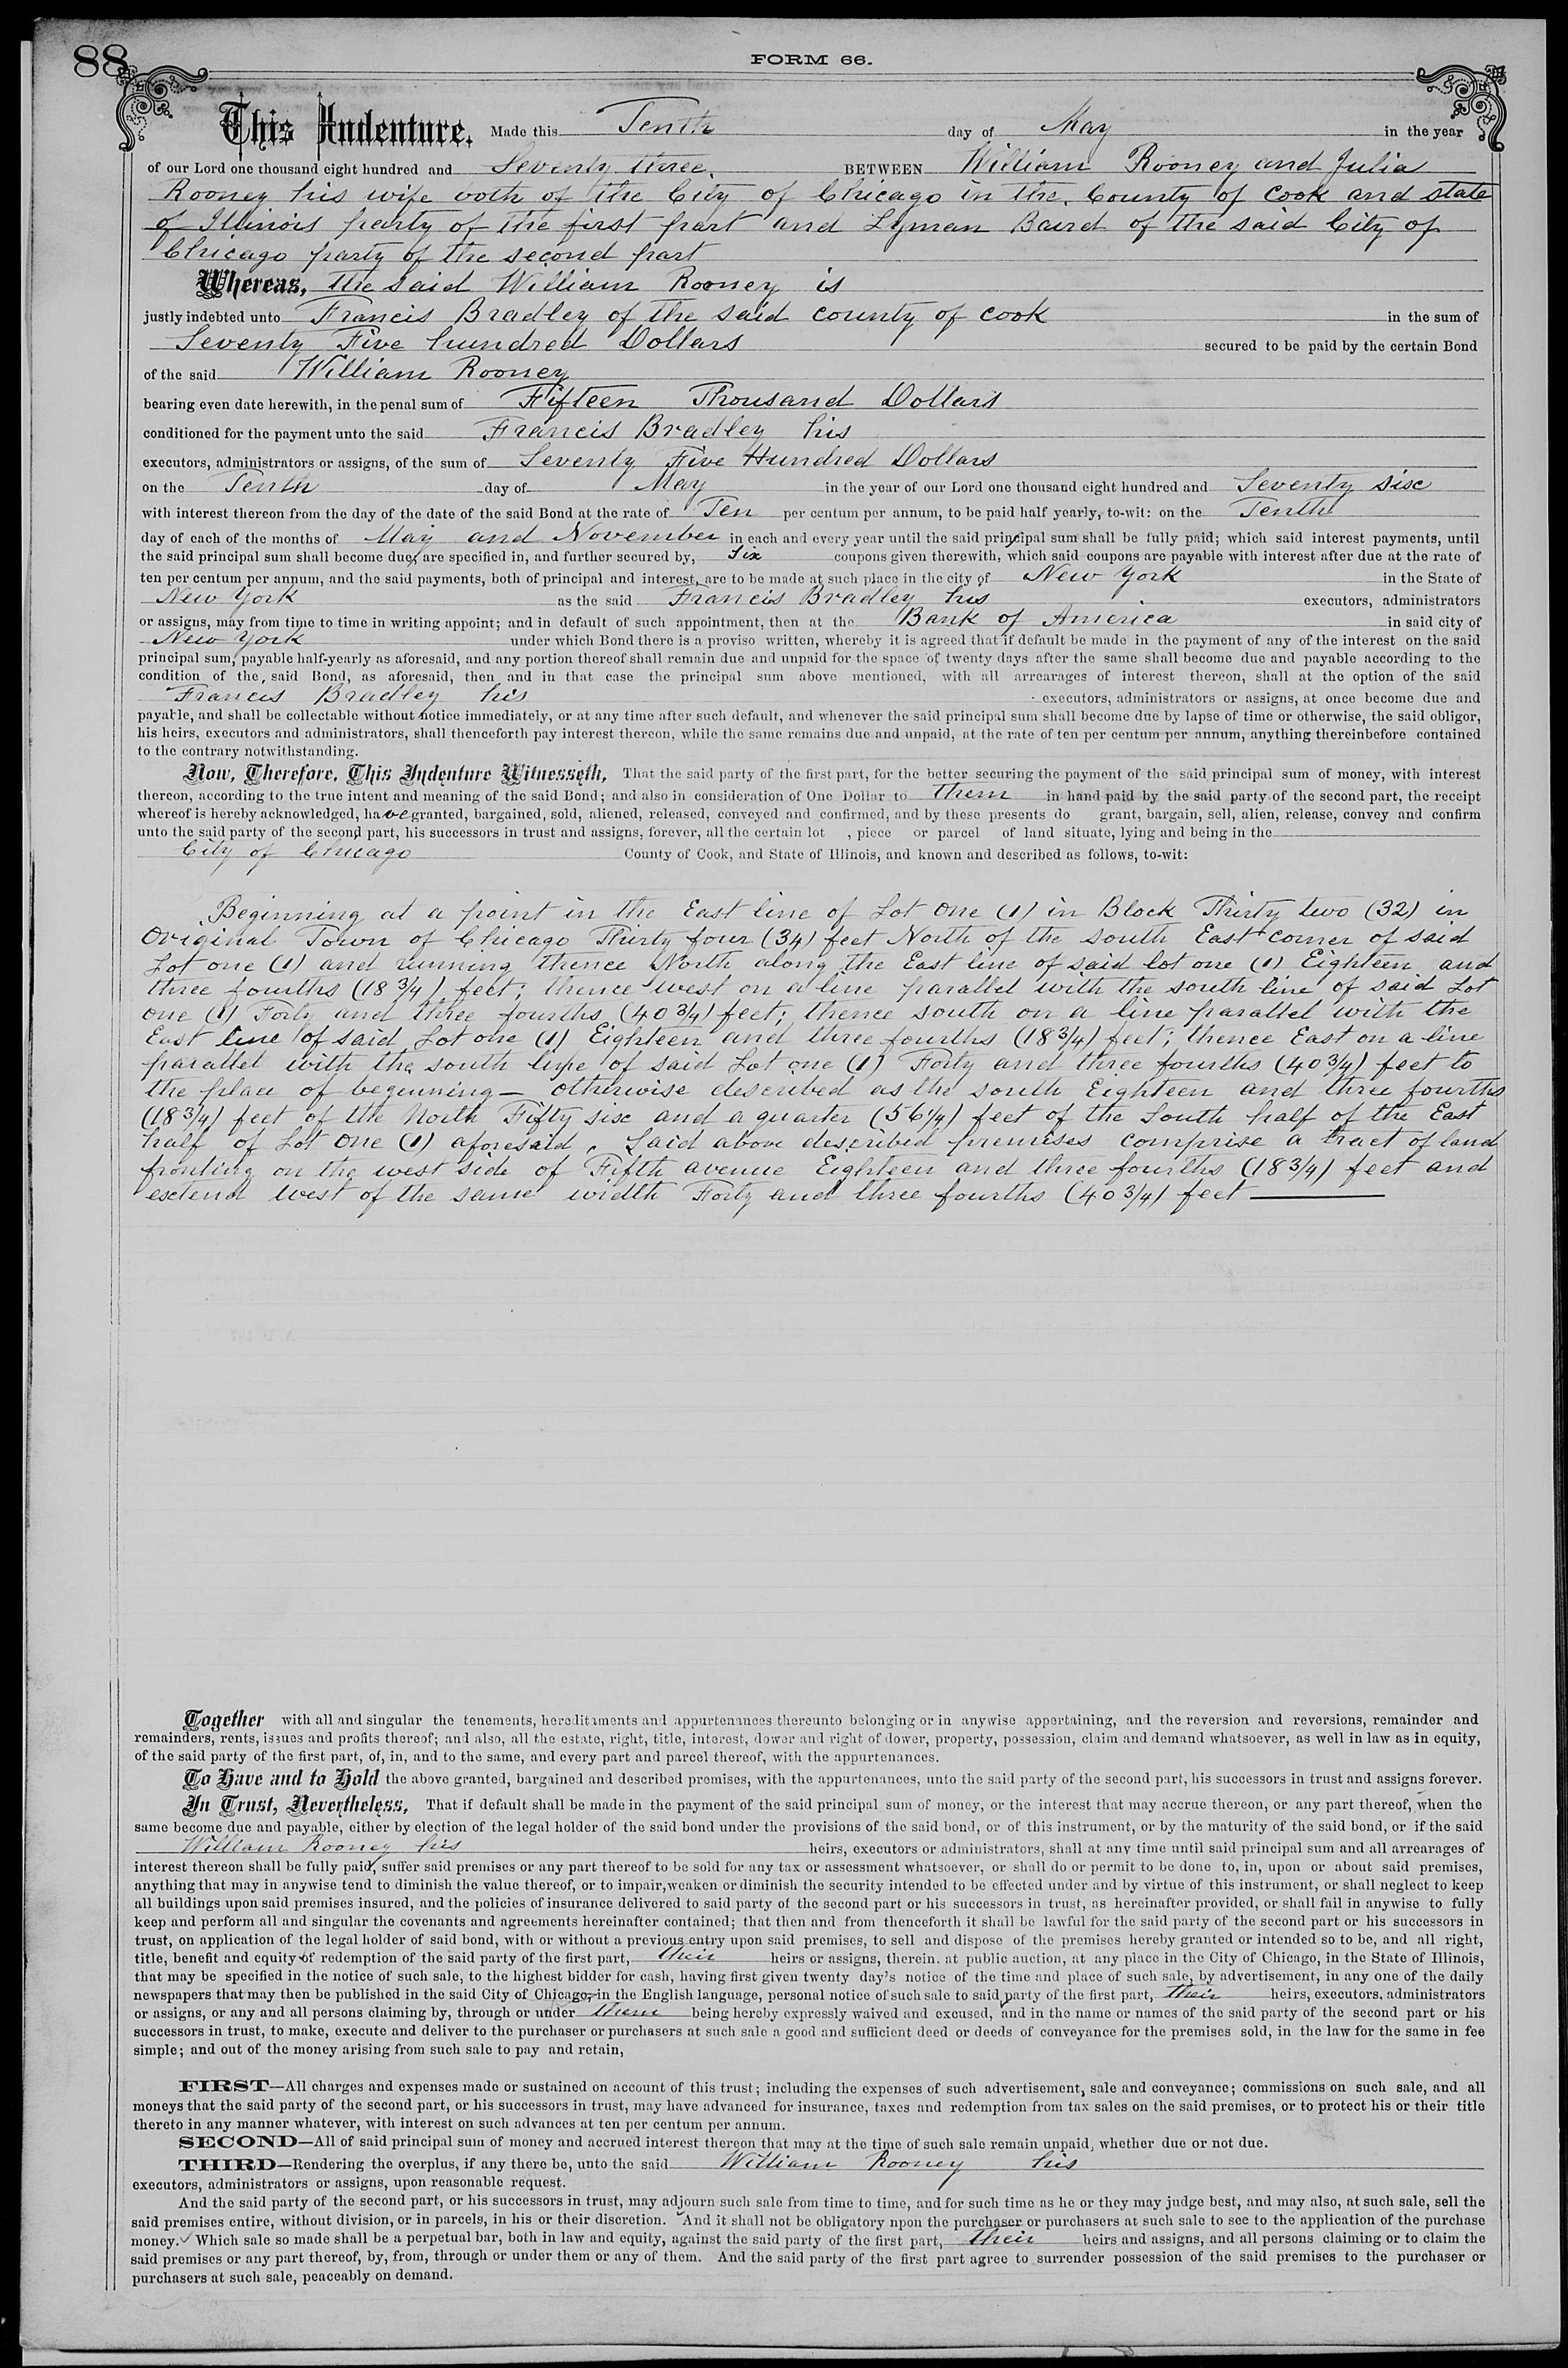 88
FORM 66.
This Indenture, Made this Tenth day of May in the year
of our Lord one thousand eight hundred and Seventy three. BETWEEN William Rooney and Julia
Rooney his wife both of the City of Chicago in the County of Cook and state
of Illinois party of the first part and Lyman Baird of the said City of
Chicago party of the second part
Whereas, the said William Rooney is
justly indebted unto Francis Bradley of the said county of cook in the sum of
Seventy Five hundred Dollars secured to be paid by the certain Bond
of the said William Rooney
bearing even date herewith, in the penal sum of Fifteen Thousand Dollars
conditioned for the payment unto the said Francis Bradley his
executors, administrators or assigns, of the sum of Seventy Five Hundred Dollars
on the Tenth day of May in the year of our Lord one thousand eight hundred and Seventy six
with interest thereon from the day of the date of the said Bond at the rate of Ten per centum per annum, to be paid half yearly, to-wit: on the Tenth
day of each of the months of May and November in each and every year until the said principal sum shall be fully paid; which said interest payments, until
the said principal sum shall become due, are specified in, and further secured by, Six coupons given therewith, which said coupons are payable with interest after due at the rate of
ten per centum per annum, and the said payments, both of principal and interest, are to be made at such place in the city of New York in the State of
New York as the said Francis Bradley his executors, administrators
or assigns, may from time to time in writing appoint; and in default of such appointment, then at the Bank of America in said city of
New York under which Bond there is a proviso written, whereby it is agreed that if default be made in the payment of any of the interest on the said
principal sum, payable half-yearly as aforesaid, and any portion thereof shall remain due and unpaid for the space of twenty days after the same shall become due and payable according to the
condition of the said Bond, as aforesaid, then and in that case the principal sum above mentioned, with all arrearages of interest thereon, shall at the option of the said
Francis Bradley his executors, administrators or assigns, at once become due and
payable, and shall be collectable without notice immediately, or at any time after such default, and whenever the said principal sum shall become due by lapse of time or otherwise, the said obligor,
his heirs, executors and administrators, shall thenceforth pay interest thereon, while the same remains due and unpaid, at the rate of ten per centum per annum, anything thereinbefore contained
to the contrary notwithstanding.
Now, Therefore, This Indenture Witnesseth, That the said party of the first part, for the better securing the payment of the said principal sum of money, with interest
thereon, according to the true intent and meaning of the said Bond; and also in consideration of One Dollar to them in hand paid by the said party of the second part, the receipt
whereof is hereby acknowledged, have granted, bargained, sold, aliened, released, conveyed and confirmed, and by these presents do grant, bargain, sell, alien, release, convey and confirm
unto the said party of the second part, his successors in trust and assigns, forever, all the certain lot , piece or parcel of land situate, lying and being in the
City of Chicago County of Cook, and State of Illinois, and known and described as follows, to-wit:
Beginning at a point in the East line of Lot One (1) in Block Thirty two (32) in
Original Town of Chicago Thirty four (34) feet North of the south East corner of said
Lot one (1) and running thence North along the East line of said lot one (1) Eighteen and
three fourths (18 3/4) feet; thence west on a line parallel with the south line of said Lot
one (1) Forty and three fourths (40 3/4) feet; thence south on a line parallel with the
East line of said Lot one (1) Eighteen and three fourths (18 3/4) feet; thence East on a line
parallel with the south line of said Lot one (1) Forty and three fourths (40 3/4) feet to
the place of beginning — otherwise described as the south Eighteen and three fourths
(18 3/4) feet of the North Fifty six and a quarter (56 1/4) feet of the South half of the East
half of Lot One (1) aforesaid. Said above described premises comprise a tract of land
fronting on the west side of Fifth avenue Eighteen and three fourths (18 3/4) feet and
extend west of the same width Forty and three fourths (40 3/4) feet
Together with all and singular the tenements, hereditaments and appurtenances thereunto belonging or in anywise appertaining, and the reversion and reversions, remainder and
remainders, rents, issues and profits thereof; and also, all the estate, right, title, interest, dower and right of dower, property, possession, claim and demand whatsoever, as well in law as in equity,
of the said party of the first part, of, in, and to the same, and every part and parcel thereof, with the appurtenances.
To Have and to Hold the above granted, bargained and described premises, with the appurtenances, unto the said party of the second part, his successors in trust and assigns forever.
In Trust, Nevertheless, That if default shall be made in the payment of the said principal sum of money, or the interest that may accrue thereon, or any part thereof, when the
same become due and payable, either by election of the legal holder of the said bond under the provisions of the said bond, or of this instrument, or by the maturity of the said bond, or if the said
William Rooney his heirs, executors or administrators, shall at any time until said principal sum and all arrearages of
interest thereon shall be fully paid, suffer said premises or any part thereof to be sold for any tax or assessment whatsoever, or shall do or permit to be done to, in, upon or about said premises,
anything that may in anywise tend to diminish the value thereof, or to impair, weaken or diminish the security intended to be effected under and by virtue of this instrument, or shall neglect to keep
all buildings upon said premises insured, and the policies of insurance delivered to said party of the second part or his successors in trust, as hereinafter provided, or shall fail in anywise to fully
keep and perform all and singular the covenants and agreements hereinafter contained; that then and from thenceforth it shall be lawful for the said party of the second part or his successors in
trust, on application of the legal holder of said bond, with or without a previous entry upon said premises, to sell and dispose of the premises hereby granted or intended so to be, and all right,
title, benefit and equity of redemption of the said party of the first part, their heirs or assigns, therein. at public auction, at any place in the City of Chicago, in the State of Illinois,
that may be specified in the notice of such sale, to the highest bidder for cash, having first given twenty day's notice of the time and place of such sale, by advertisement, in any one of the daily
newspapers that may then be published in the said City of Chicago, in the English language, personal notice of such sale to said party of the first part, their heirs, executors, administrators
or assigns, or any and all persons claiming by, through or under them being hereby expressly waived and excused, and in the name or names of the said party of the second part or his
successors in trust, to make, execute and deliver to the purchaser or purchasers at such sale a good and sufficient deed or deeds of conveyance for the premises sold, in the law for the same in fee
simple; and out of the money arising from such sale to pay and retain,
FIRST—All charges and expenses made or sustained on account of this trust; including the expenses of such advertisement, sale and conveyance; commissions on such sale, and all
moneys that the said party of the second part, or his successors in trust, may have advanced for insurance, taxes and redemption from tax sales on the said premises, or to protect his or their title
thereto in any manner whatever, with interest on such advances at ten per centum per annum.
SECOND—All of said principal sum of money and accrued interest thereon that may at the time of such sale remain unpaid, whether due or not due.
THIRD—Rendering the overplus, if any there be, unto the said William Rooney his
executors, administrators or assigns, upon reasonable request.
And the said party of the second part, or his successors in trust, may adjourn such sale from time to time, and for such time as he or they may judge best, and may also, at such sale, sell the
said premises entire, without division, or in parcels, in his or their discretion. And it shall not be obligatory upon the purchaser or purchasers at such sale to see to the application of the purchase
money. Which sale so made shall be a perpetual bar, both in law and equity, against the said party of the first part, their heirs and assigns, and all persons claiming or to claim the
said premises or any part thereof, by, from, through or under them or any of them. And the said party of the first part agree to surrender possession of the said premises to the purchaser or
purchasers at such sale, peaceably on demand.